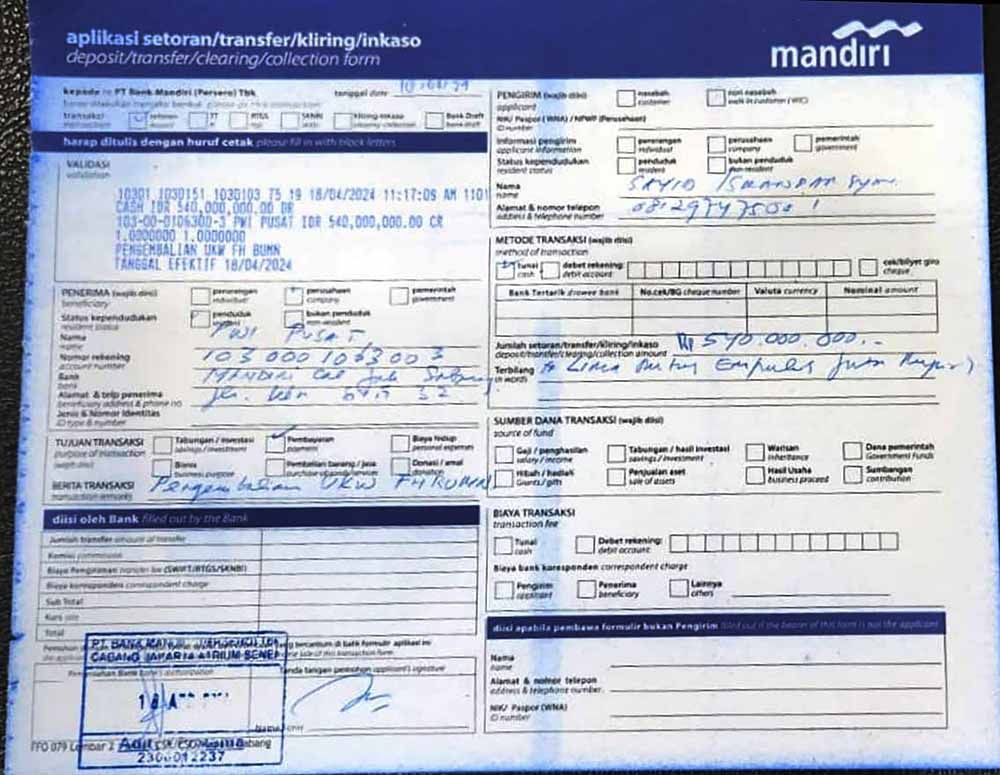 aplikasi setoran/transfer/kliring/inkaso
deposit/transfer/clearing/collection form
mandiri
kepada to PT Bank Mandiri (Persero) Tbk
tanggal date
transaksi
setoran
TT
RTGS
SKNBI
kliring-inkaso
Bank Draft
bank draft
harap ditulis dengan huruf cetak please fill in with block letters
VALIDASI
validation
10301 1030151 1030103 T5 19 18/04/2024 11:17:09 AM 1101
CASH IDR 540,000,000.00 DR
103-00-0106300-3 PWI PUSAT IDR 540,000,000.00 CR
1.0000000 1.0000000
PENGEMBALIAN UKW FH BUMN
TANGGAL EFEKTIF 18/04/2024
PENERIMA (wajib diisi)
beneficiary
perorangan
individual
perusahaan
company
pemerintah
government
Status kependudukan
resident status
penduduk
resident
bukan penduduk
non-resident
Nama
name
PWI PUSAT
Nomor rekening
account number
103 000 1063003
Bank
bank
MANDIRI
Alamat & telp penerima
beneficiary address & phone no
Jenis & Nomor Identitas
ID type & number
TUJUAN TRANSAKSI
purpose of transaction
(wajib diisi)
Tabungan / investasi
savings / investment
Pembayaran
payment
Biaya hidup
personal expenses
Bisnis
business purpose
Pembelian barang / jasa
purchase of goods/services
Donasi / amal
donation
BERITA TRANSAKSI
transaction remarks
Pengembalian UKW FH BUMN
diisi oleh Bank filled out by the Bank
Jumlah transfer amount of transfer
Komisi commission
Biaya Pengiriman transfer fee (SWIFT/RTGS/SKNBI)
Biaya koresponden correspondent charge
Sub Total
Kurs rate
Total
tercantum di balik formulir aplikasi ini
side of this transaction form.
Tanda tangan pemohon applicant's signature
CABANG JAKARTA ATRIUM SENEN
2300012237
FFO 079 Lembar 2
PENGIRIM (wajib diisi)
applicant
nasabah
customer
non nasabah
walk in customer (WIC)
NIK/ Paspor (WNA) / NPWP (Perusahaan)
ID number
Informasi pengirim
applicant information
perorangan
individual
perusahaan
company
pemerintah
government
Status kependudukan
resident status
penduduk
resident
bukan penduduk
non-resident
Nama
name
SAYID ISKANDAR
Alamat & nomor telepon
address & telephone number
METODE TRANSAKSI (wajib diisi)
method of transaction
Tunai
cash
debet rekening:
debit account
cek/bilyet giro
cheque
Bank Tertarik drawee bank
No.cek/BG cheque number
Valuta currency
Nominal amount
Jumlah setoran/transfer/kliring/inkaso
deposit/transfer/clearing/collection amount
Rp 540.000.000.-
Terbilang
in words
Lima Ratus Empuluh Juta Rupiah)
SUMBER DANA TRANSAKSI (wajib diisi)
source of fund
Gaji / penghasilan
salary / income
Tabungan / hasil investasi
savings / investment
Warisan
inheritance
Dana pemerintah
Government Funds
Hibah / hadiah
Grants / gifts
Penjualan aset
sale of assets
Hasil Usaha
business proceed
Sumbangan
contribution
BIAYA TRANSAKSI
transaction fee
Tunai
cash
Debet rekening:
debit account
Biaya bank koresponden correspondent charge
Pengirim
applicant
Penerima
beneficiary
Lainnya
others
diisi apabila pembawa formulir bukan Pengirim filled out if the bearer of this form is not the applicant
Nama
name
Alamat & nomor telepon
address & telephone number
NIK/ Paspor (WNA)
ID number